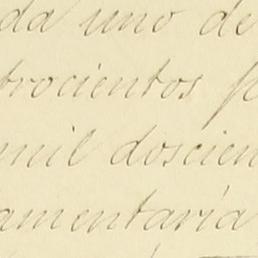 da uno de
trocientos p
mil doscien
amentaría